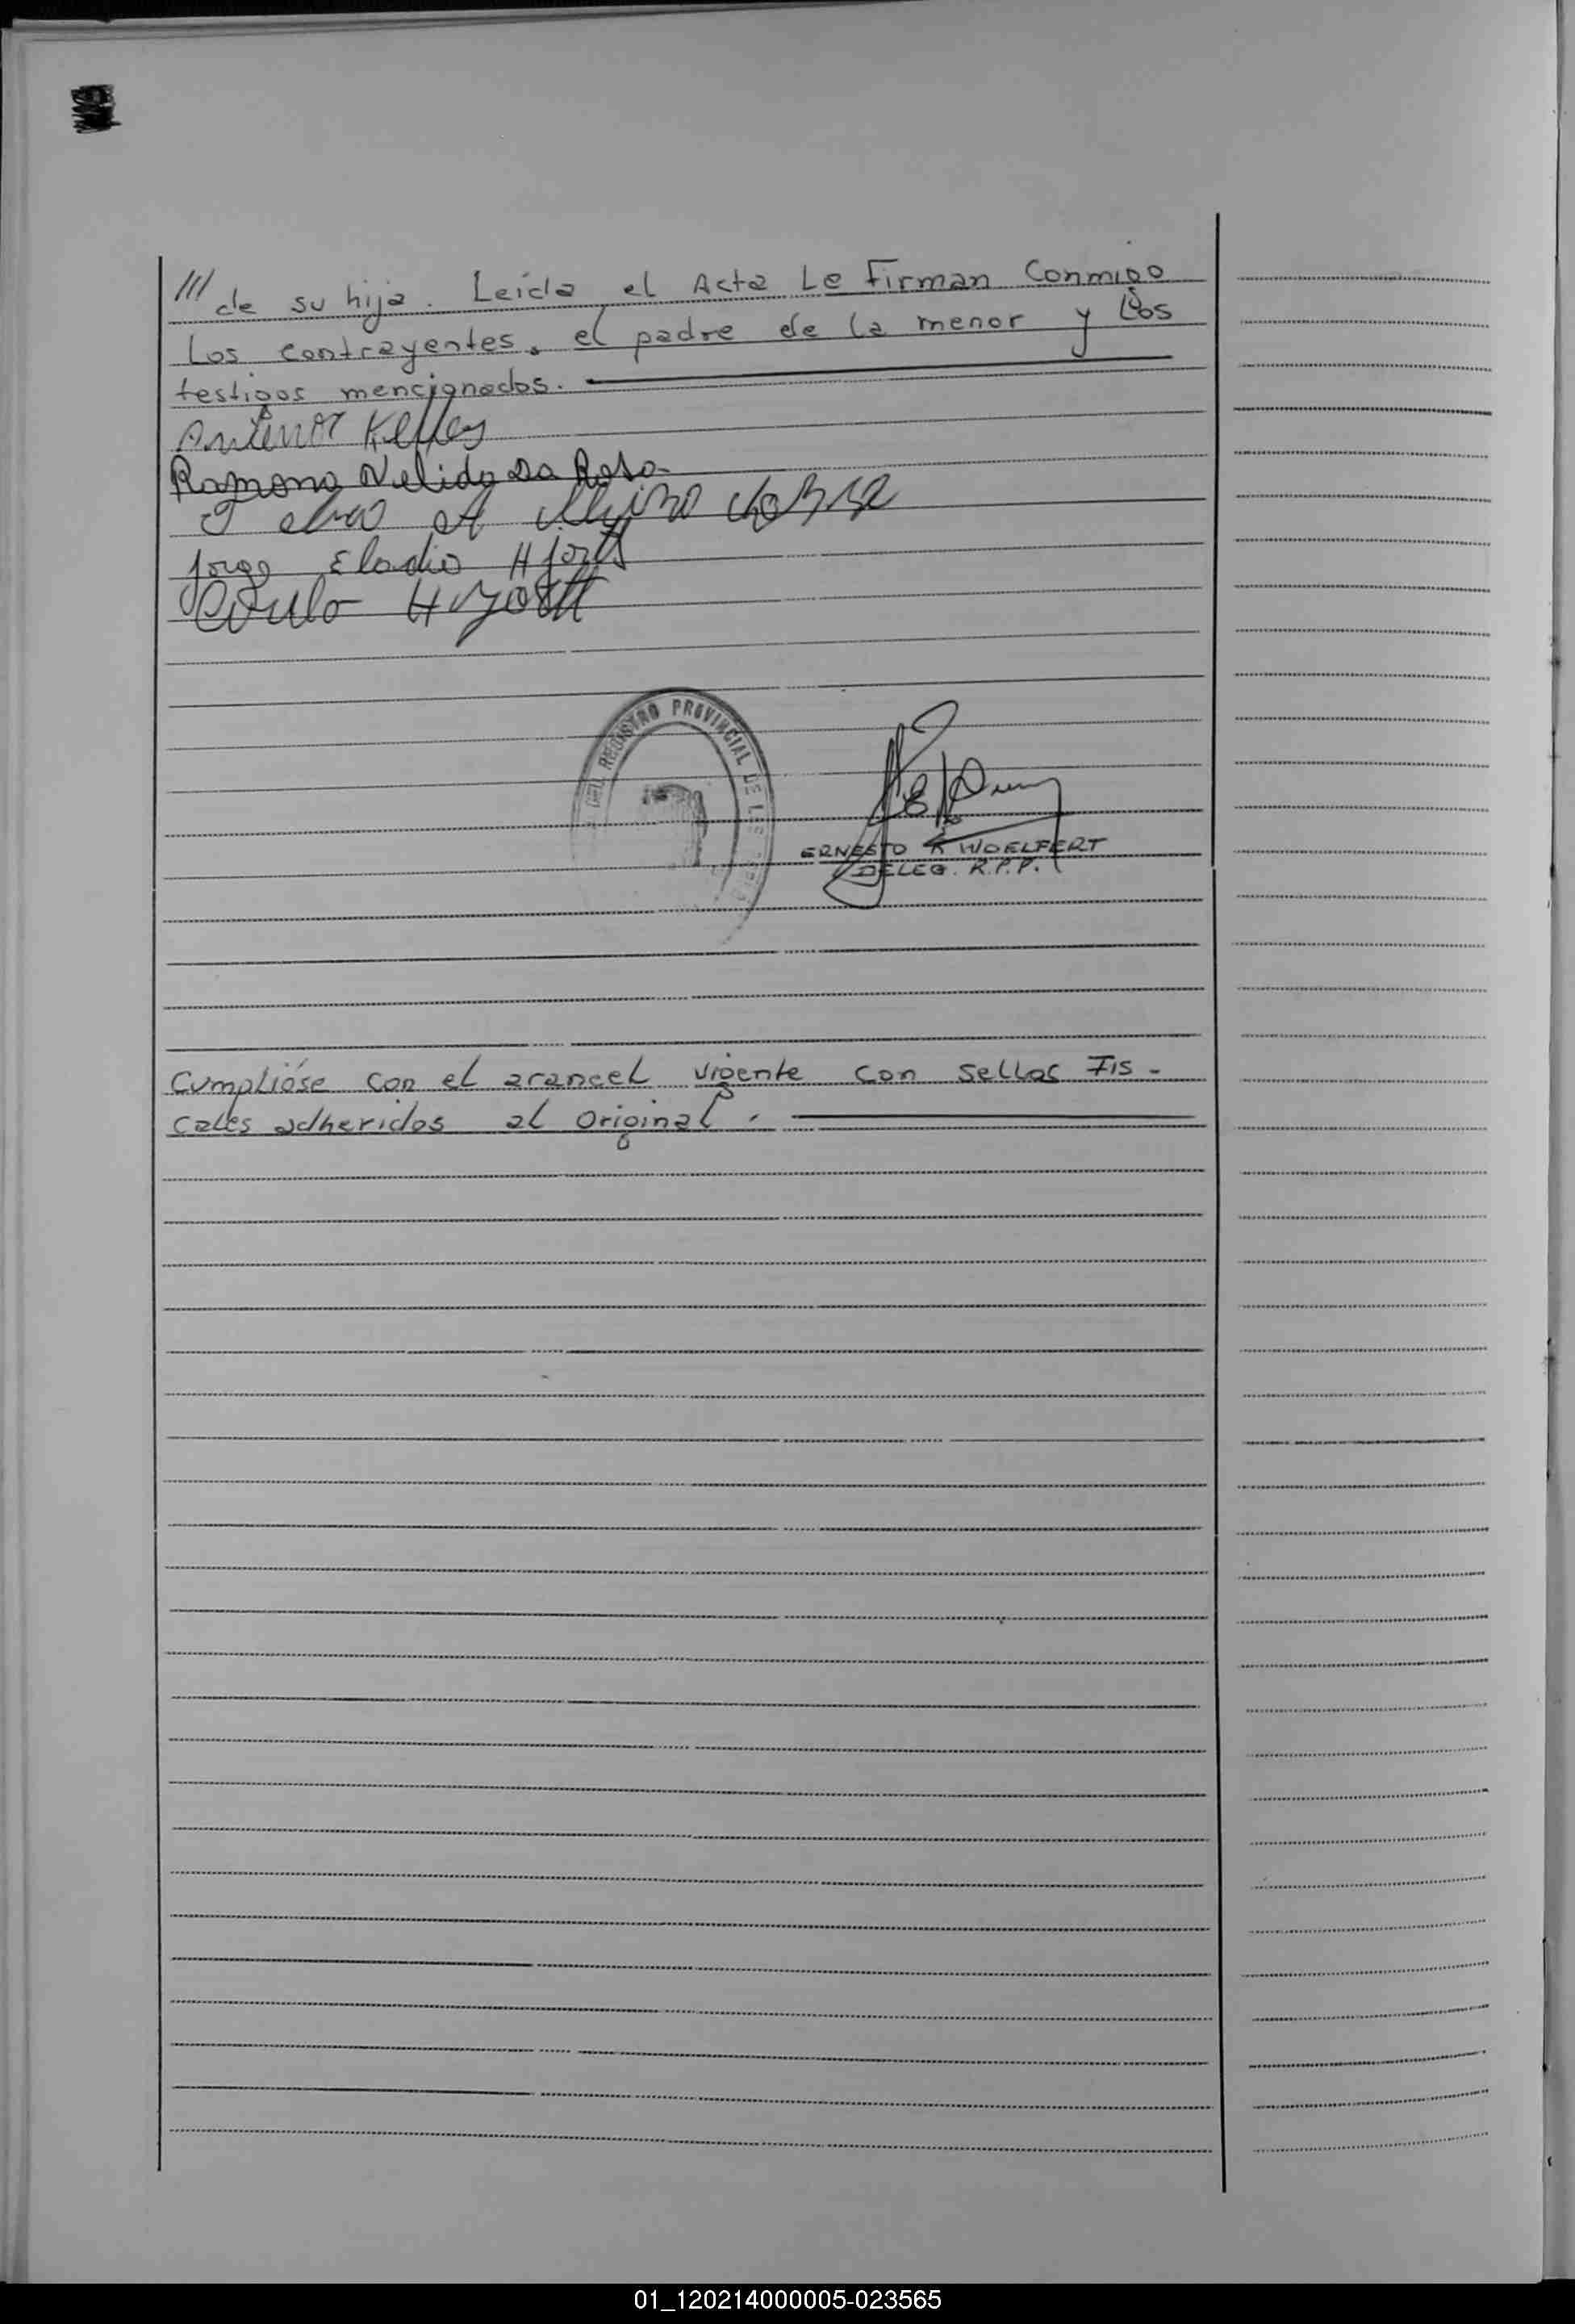 /// de su hija. Leída el Acta Le Firman Conmigo
Los contrayentes, el padre de la menor y Los
testigos mencionados.
Antenor Kelley
Ramona Nelida Da Rosa
A
Jorge Eladio Hjortt
Hyortt
DEL REGISTRO PROVINCIAL DE LAS
ERNESTO R WOELFERT
DELEG. R.P.P.
Cumplióse con el arancel vigente con sellos Fis-
cales adheridos al Original.
01_120214000005-023565